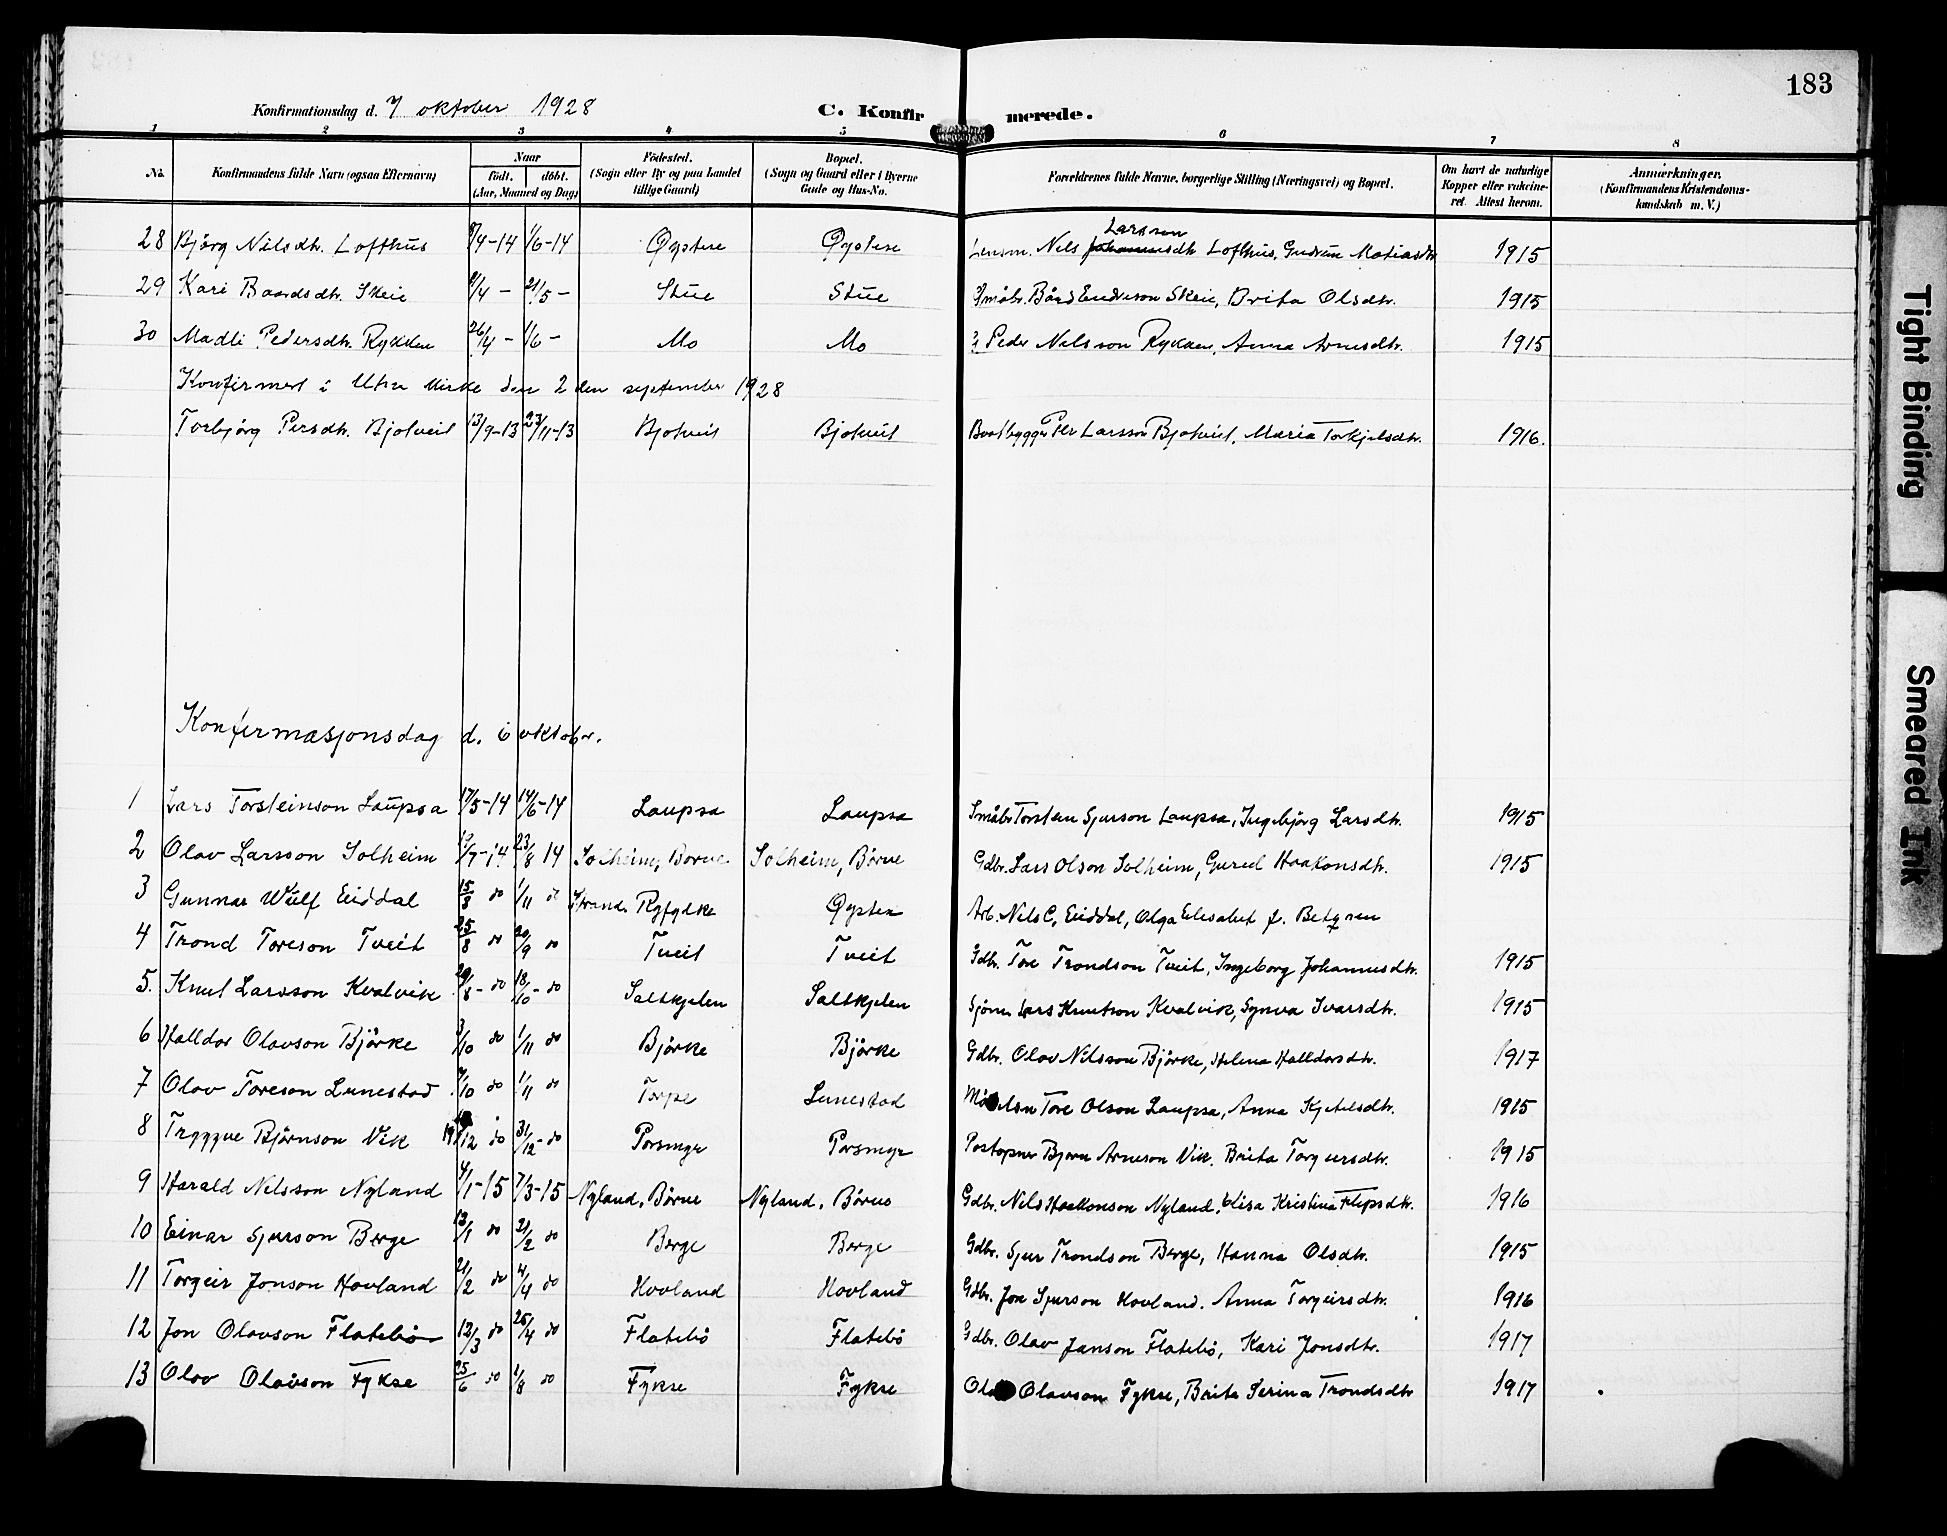 183
Konfirmationsdag d. 7 oktober 1928 C. Konfirmerede.
1 2 3 4 5 6 7 8
No. Konfirmandens fulde Navn (ogsaa Efternavn) Naar født. døbt. (Aar, Maaned og Dag) Födested. (Sogn eller By og paa Landet tillige Gaard) Bopæl. (Sogn og Gaard eller i Byerne Gade og Hus-No. Forældrenes fulde Navne, borgerlige Stilling (Næringsvei) og Bopæl. Om havt de naturlige Kopper eller vakcineret. Attest herom. Anmærkninger. (Konfirmandens Kristendomskundskab m. V.)
Larsson
28 Bjørg Nilsdtr. Lofthus 9/4-14 1/6-14 Øystese Øystese Lensm. Nels Johannesdtr Lofthus, Gudrun Matiasdtr 1915
29 Kari Baardsdtr. Skeie /4 - 21/5 - Stue Stue Småbr. Bård Endreson Skeie, Brita Olsdtr. 1915
30 Madli Pedersdtr. Rykken 26/4 - 1/6 - Mo Mo Peder Nelsson Rykken, Anna Arnesdtr. 1915
Konfirmert i Utne kirke den 2den september 1928
Torbjørg Persdtr. Bjotveit 13/9-13 23/11-13 Bjotveit Bjotveit Baatbygger Per Larsson Bjotveit, Maria Torkjelsdtr. 1916.
Konfirmasjonsdag d. 6 oktobr.
1 Lars Torsteinson Laupsa 17/5-14 14/6-14 Laupsa Laupsa Småbr Torstein Sjurson Laupsa, Ingebjørg Larsdtr. 1915
2 Olav Larsson Solheim 12/7-14 23/8 14 Solheim, Børve Solheim, Børve Gdbr. Lars Olson Solheim, Gurid Haakonsdtr. 1915
3 Gunnar Wulf Eiddal 15/8 do 1/11 do Strand, Ryfylke Øystese Arb. Nels C, Eiddal, Olga Elisabet f. Betzren
4 Trond Toreson Tveit 25/8 do 20/9 do Tveit Tveit Gdbr. Tore Trondson Tveit, Ingeborg Johannesdtr. 1915
5. Knut Larsson Kvalvik 29/8 - do 18/10 - do Saltkjelen Saltkjelen Sjöm. Lars Knutson Kvalvik, Synva Ivarsdtr. 1915
6 Halldor Olavson Björke 3/10 do 1/11 do Björke Björke Gdbr. Olav Nilsson Björke, Helena Halldorsdtr. 1917
7 Olav Toreson Lunestad 9/10 do 1/11 do Torpe Lunestad Tore Olson Laupsa, Anna Kjetelsdtr. 1915
8 Tryggve Björnson Vik 19/12 do 31/12 - do Porsmyr Porsmyr Postopner Bjørn Arneson Vik. Brita Torgersdtr. 1915
9 Harald Nelsson Nyland 4/1-15 7/3-15 Nyland, Börve Nyland, Börve Gdbr. Nils Haakonson Nyland, Elisa Kristina Flipsdtr. 1916
10 Einar Sjurson Berge 13/1 do 21/2 do Berge Berge Gdbr. Sjur Trondson Berge, Hanna Olsdtr. 1915
11 Torgeir Jonson Hovland 21/2 do 4/4 do Hovland Hovland Gdbr. Jon Sjurson Hovland. Anna Torgeirsdtr. 1916
12 Jon Olavson Flatebö 12/3 do 25/4 do Flatebö Flatebö Gdbr. Olav Janson Flatebö, Kari Jonsdtr. 1917
13 Olav Olavson Fykse 25/6 do 1/8 do Fykse Fykse Olav Olavson Fykse, Brita Serina Trondsdtr 1917
Tight Binding
Smeared Ink